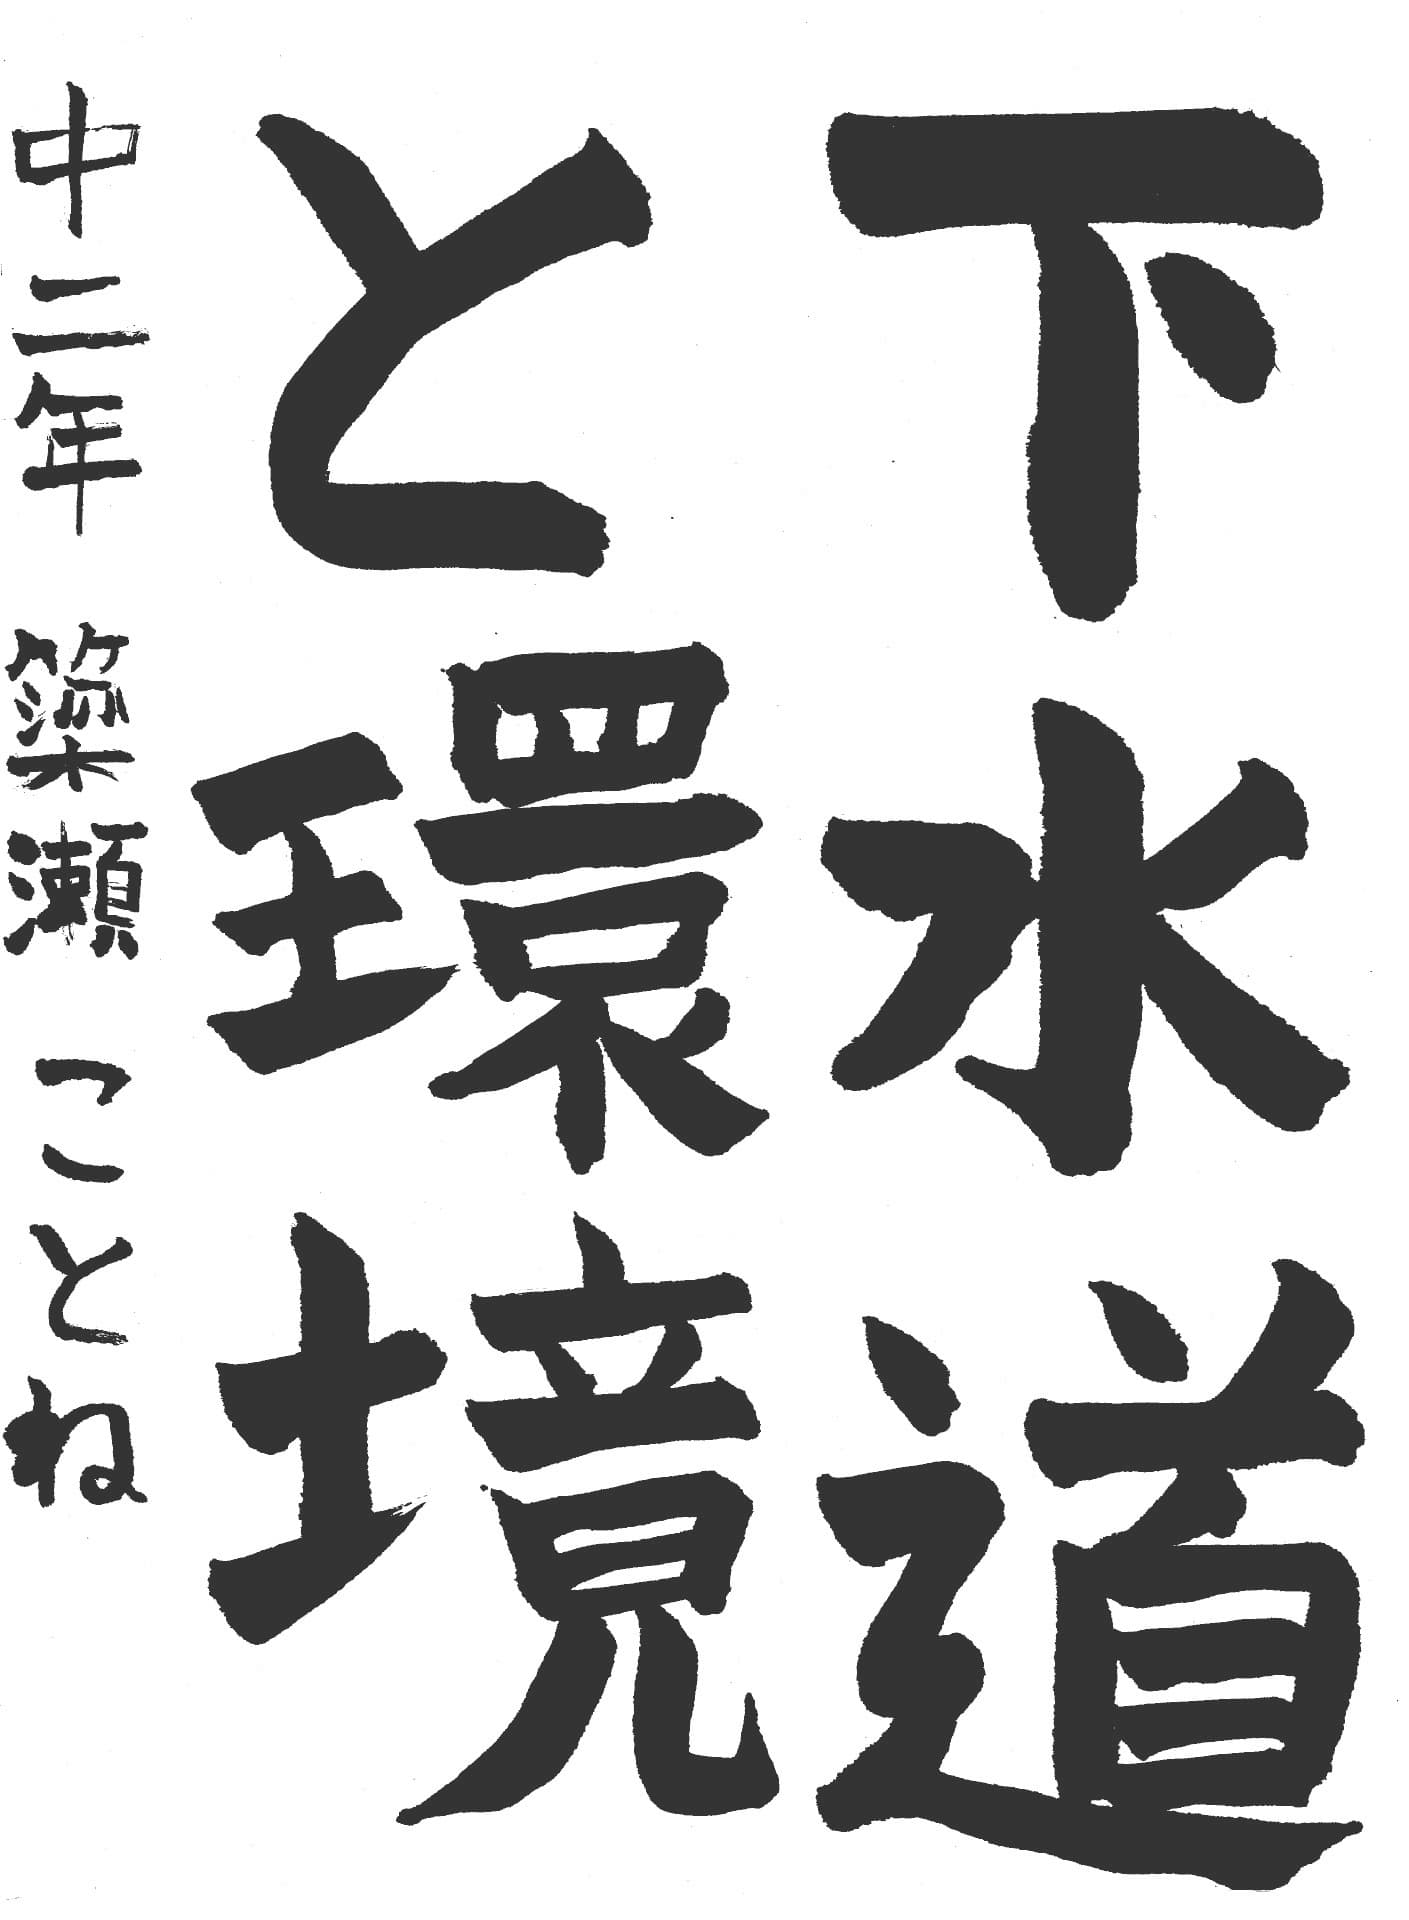 下水道
と環境
中二年 簗瀬 ことね